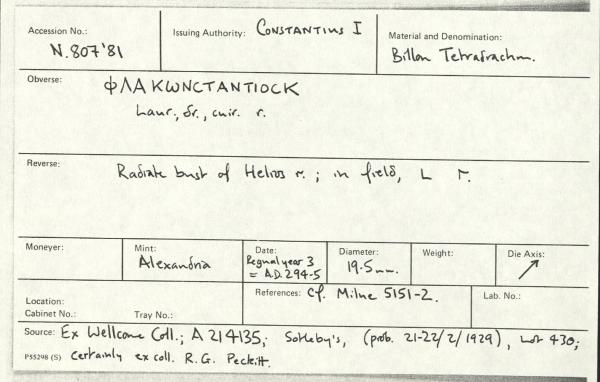 Accession No.: N.807'81
Issuing Authority: CONSTANTIUS I
Material and Denomination: Billon Tetradrachm.
Obverse:
ΦΛΑ ΚѠΝCΤΑΝΤΙΟCΚ
Laur., dr., cuir. r.
Reverse:
Radiate bust of Helios r.; in field, L Γ.
Moneyer:
Mint: Alexandria
Date: Regnal year 3
= A.D. 294-5
Diameter: 19.5mm.
Weight:
Die Axis: ↗
Location:
Cabinet No.: Tray No.:
References: Cf. Milne 5151-2.
Lab. No.:
Source: Ex Wellcome Coll.; A 214135; Sotheby's, (prob. 21-22/2/1929), Lot 430;
P55298 (S) certainly ex coll. R.G. Peckitt.